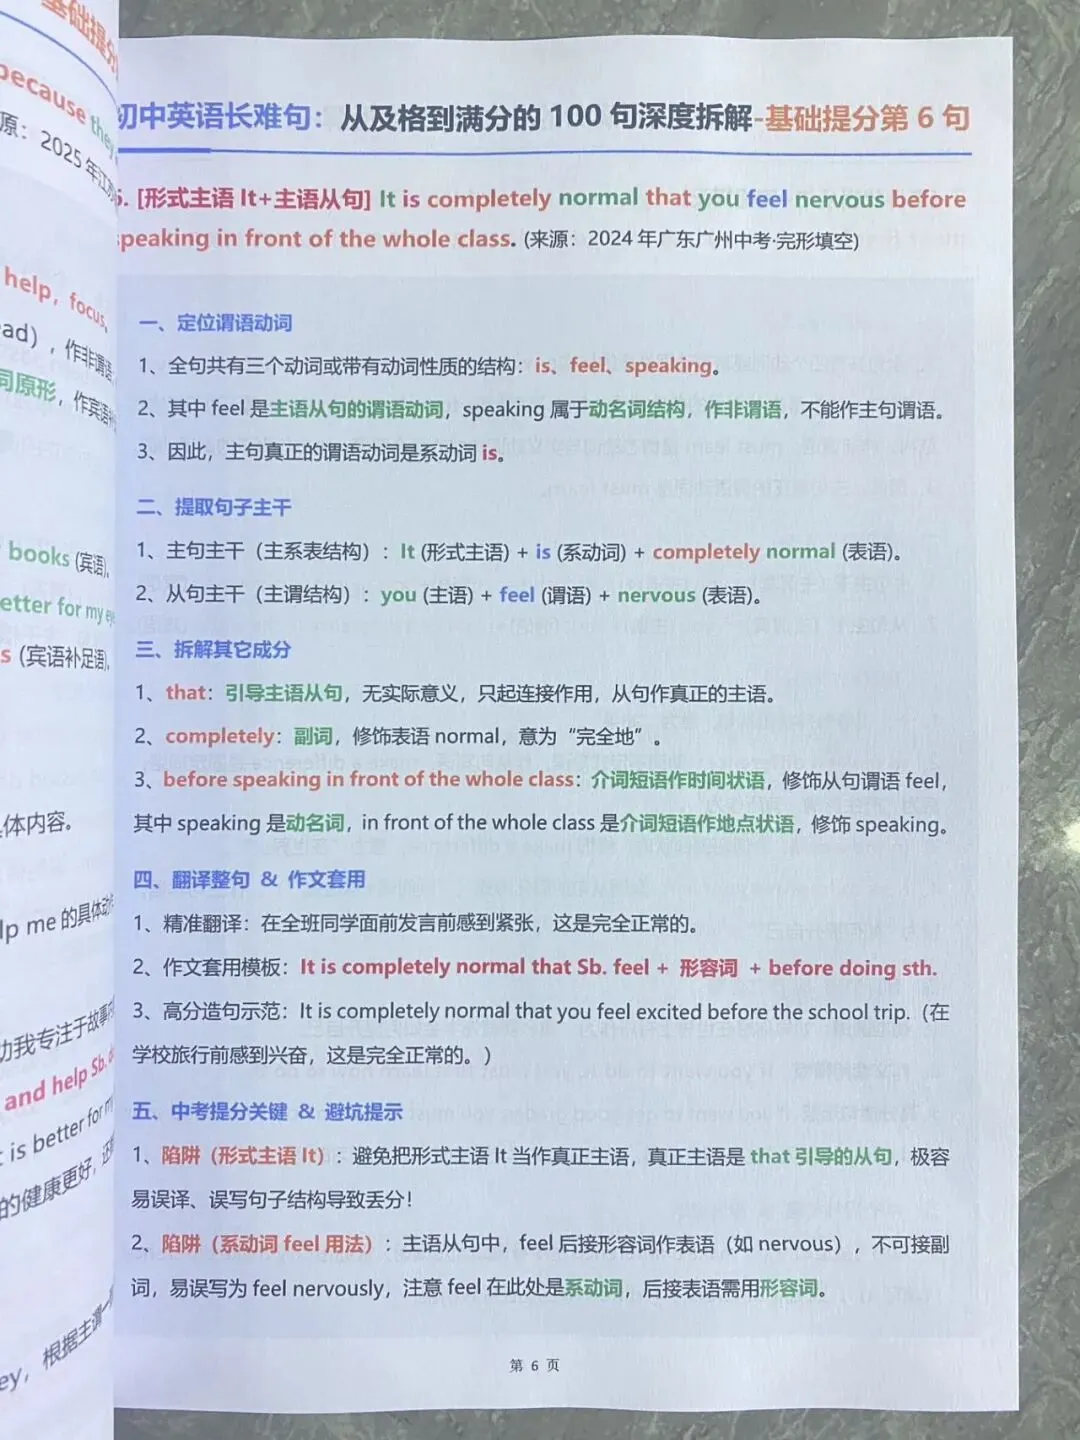 基础提分
because they
原：2025年江苏
help, focus,
ead），作非谓语
词原形，作宾语补
books (宾语),
etter for my eye
s (宾语补足语).
体内容。
lp me 的具体动作
功我专注于故事
and help Sb. d
t is better for my
的健康更好，还
ey，根据主谓一
初中英语长难句：从及格到满分的 100 句深度拆解-基础提分第 6 句
6. [形式主语 It+主语从句] It is completely normal that you feel nervous before
speaking in front of the whole class. (来源：2024 年广东广州中考·完形填空)
一、定位谓语动词
1、全句共有三个动词或带有动词性质的结构：is、feel、speaking。
2、其中 feel 是主语从句的谓语动词，speaking 属于动名词结构，作非谓语，不能作主句谓语。
3、因此，主句真正的谓语动词是系动词 is。
二、提取句子主干
1、主句主干（主系表结构）：It (形式主语) + is (系动词) + completely normal (表语)。
2、从句主干（主谓结构）：you (主语) + feel (谓语) + nervous (表语)。
三、拆解其它成分
1、that：引导主语从句，无实际意义，只起连接作用，从句作真正的主语。
2、completely：副词，修饰表语 normal，意为“完全地”。
3、before speaking in front of the whole class：介词短语作时间状语，修饰从句谓语 feel，
其中 speaking 是动名词，in front of the whole class 是介词短语作地点状语，修饰 speaking。
四、翻译整句 & 作文套用
1、精准翻译：在全班同学面前发言前感到紧张，这是完全正常的。
2、作文套用模板：It is completely normal that Sb. feel + 形容词 + before doing sth.
3、高分造句示范：It is completely normal that you feel excited before the school trip.（在
学校旅行前感到兴奋，这是完全正常的。）
五、中考提分关键 & 避坑提示
1、陷阱（形式主语 It）：避免把形式主语 It 当作真正主语，真正主语是 that 引导的从句，极容
易误译、误写句子结构导致丢分！
2、陷阱（系动词 feel 用法）：主语从句中，feel 后接形容词作表语（如 nervous），不可接副
词，易误写为 feel nervously，注意 feel 在此处是系动词，后接表语需用形容词。
第 6 页